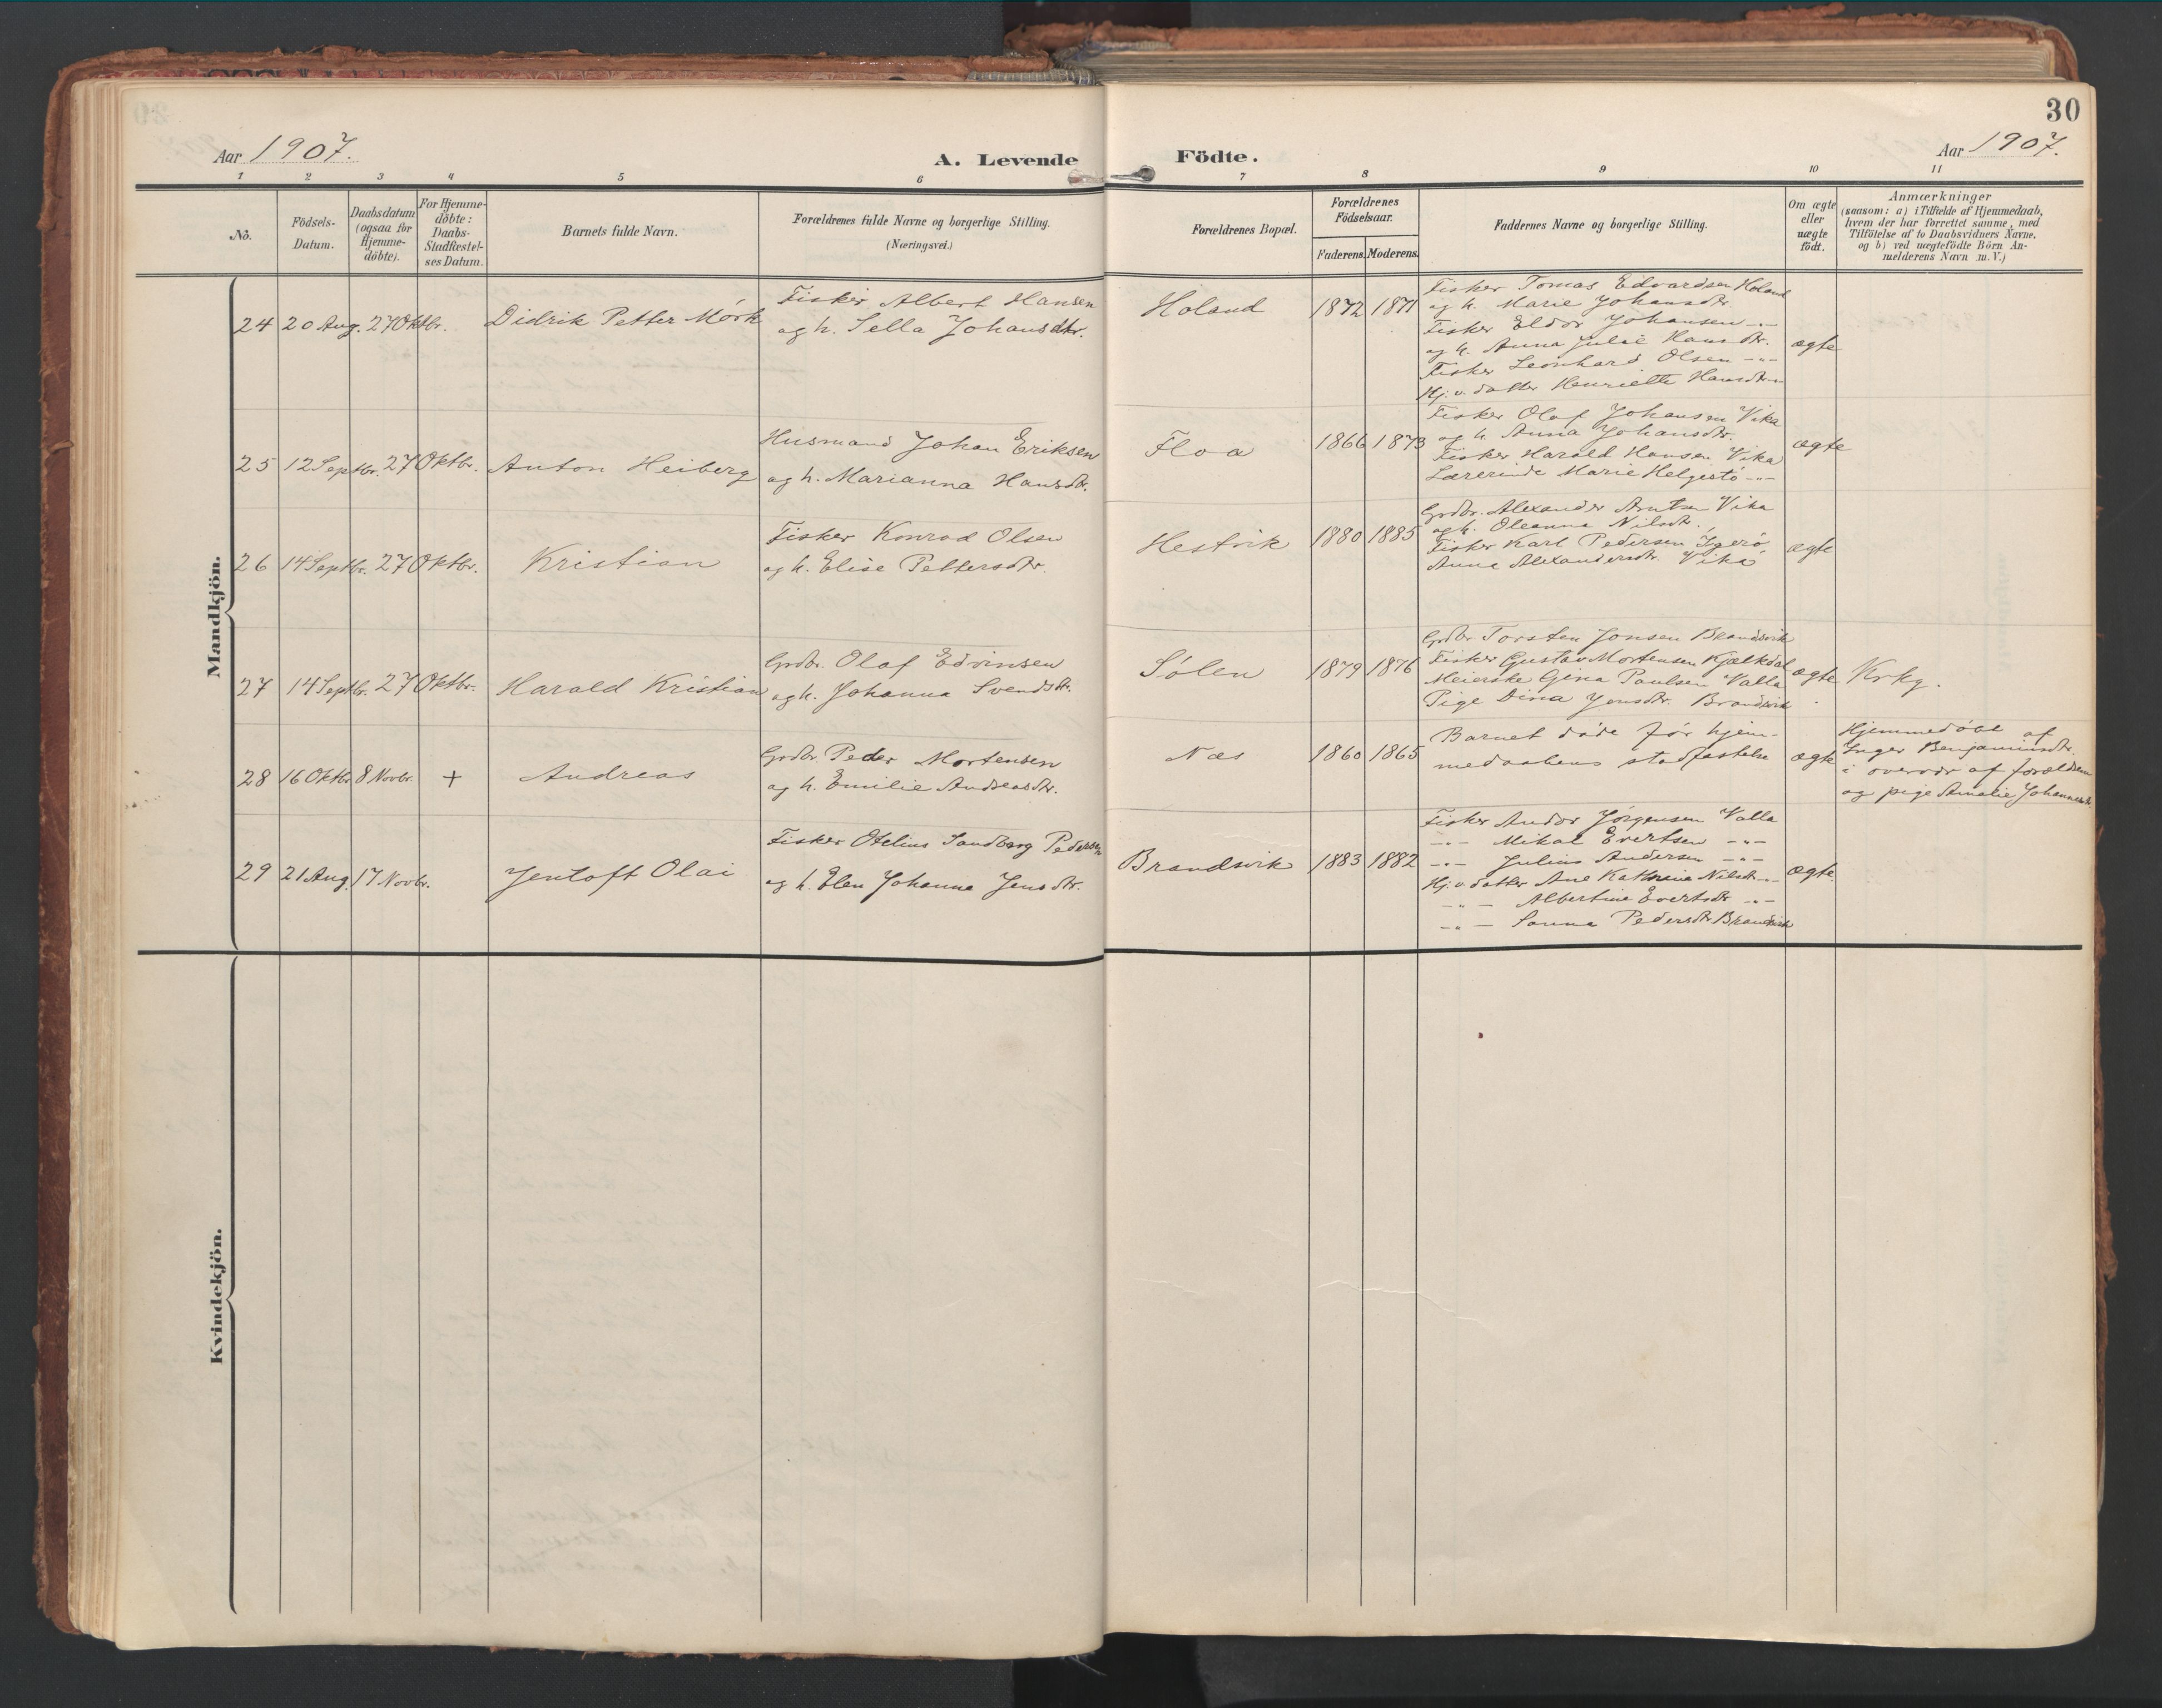 30
Aar 1907.
A. Levende Födte.
Aar 1907.
1 2 3 4 5 6 7 8 9 10 11
No.
Födsels-
Datum.
Daabsdatum
(ogsaa for
Hjemme-
döbte).
For Hjemme-
döbte:
Daabs-
Stadfæstel-
ses Datum.
Barnets fulde Navn.
Forældrenes fulde Navne og borgerlige Stilling.
(Næringsvei.)
Forældrenes Bopæl.
Forældrenes
Födselsaar.
Faderens. Moderens.
Faddernes Navne og borgerlige Stilling.
Om ægte
eller
uægte
födt.
Anmærkninger
(saasom: a) i Tilfælde af Hjemmedaab,
hvem der har forrettet samme, med
Tilföielse af to Daabsvidners Navne,
og b) ved uægtefödte Börn An-
melderens Navn m. V.)
Mandkjön.
24 20 Aug. 27 Oktbr. Didrik Petter Mörk
Fisker Albert Hansen
og h. Sella Johansdtr.
Holand 1872 1871
Fisker Tomas Edvardsen Holand
og h. Marie Johansdtr.
Fisker Eldor Johansen -"-
og h. Anna Julie Hansdtr.
Fisker Leonhard Olsen -"-
Hj. v. datter Henriette Hansdtr -"-
ægte
25 12 Septbr. 27 Oktbr. Anton Heiberg
Husmand Johan Eriksen
og h. Marianna Hansdtr.
Floa 1866 1873
Fisker Olaf Johansen Vika
og h. Anna Johansdtr.
Fisker Harald Hansen Vika
Lærerinde Marie Helgestö -"-
ægte
26 14 Septbr. 27 Oktbr. Kristian
Fisker Konrad Olsen
og h. Elise Pettersdtr.
Hestvik 1880 1885
Grdbr. Alexander Arntsen Vika
og h. Oleanna Nilsdtr.
Fisker Karl Pedersen Igerö
Anna Alexandersdtr. Vika
ægte
27 14 Septbr. 27 Oktbr. Harald Kristian
Grdbr. Olaf Edvinsen
og h. Johanna Svendsdtr.
Sölen 1879 1876
Grdbr Torsten Jonsen Brandsvik
Fisker Gustav Mortensen Kjælkdal
Meierske Gina Paulsen Valla
Pige Dina Jensdtr. Brandsvik
ægte Krkg.
28 16 Oktbr. 8 Novbr. + Andreas
Grdbr. Peder Mortensen
og h. Emilie Andreasdtr.
Næs 1860 1865
Barnet döde för hjem-
medaabens stadfæstelse
ægte
Hjemmedöbt af
Inger Benjaminsdtr.
i overvær af forældrene
og pige Amalie Johannesdtr.
29 21 Aug. 17 Novbr. Jentoft Olai
Fisker Otelius Sandberg Pedersen
og h. Elen Johanna Jensdtr.
Brandsvik 1883 1882
Fisker Andor Jörgensen Valla
-"- Mikal Evertsen -"-
-"- Julius Andersen -"-
Hj. v. datter Ane Katrine Nilsdtr -"-
-"- Albertine Evertsdtr -"-
-"- Sanna Pedersdtr Brandsvik
ægte.
Kvindekjön.